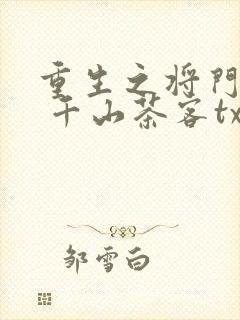 重生之将門
千山茶客tx
邹雪白